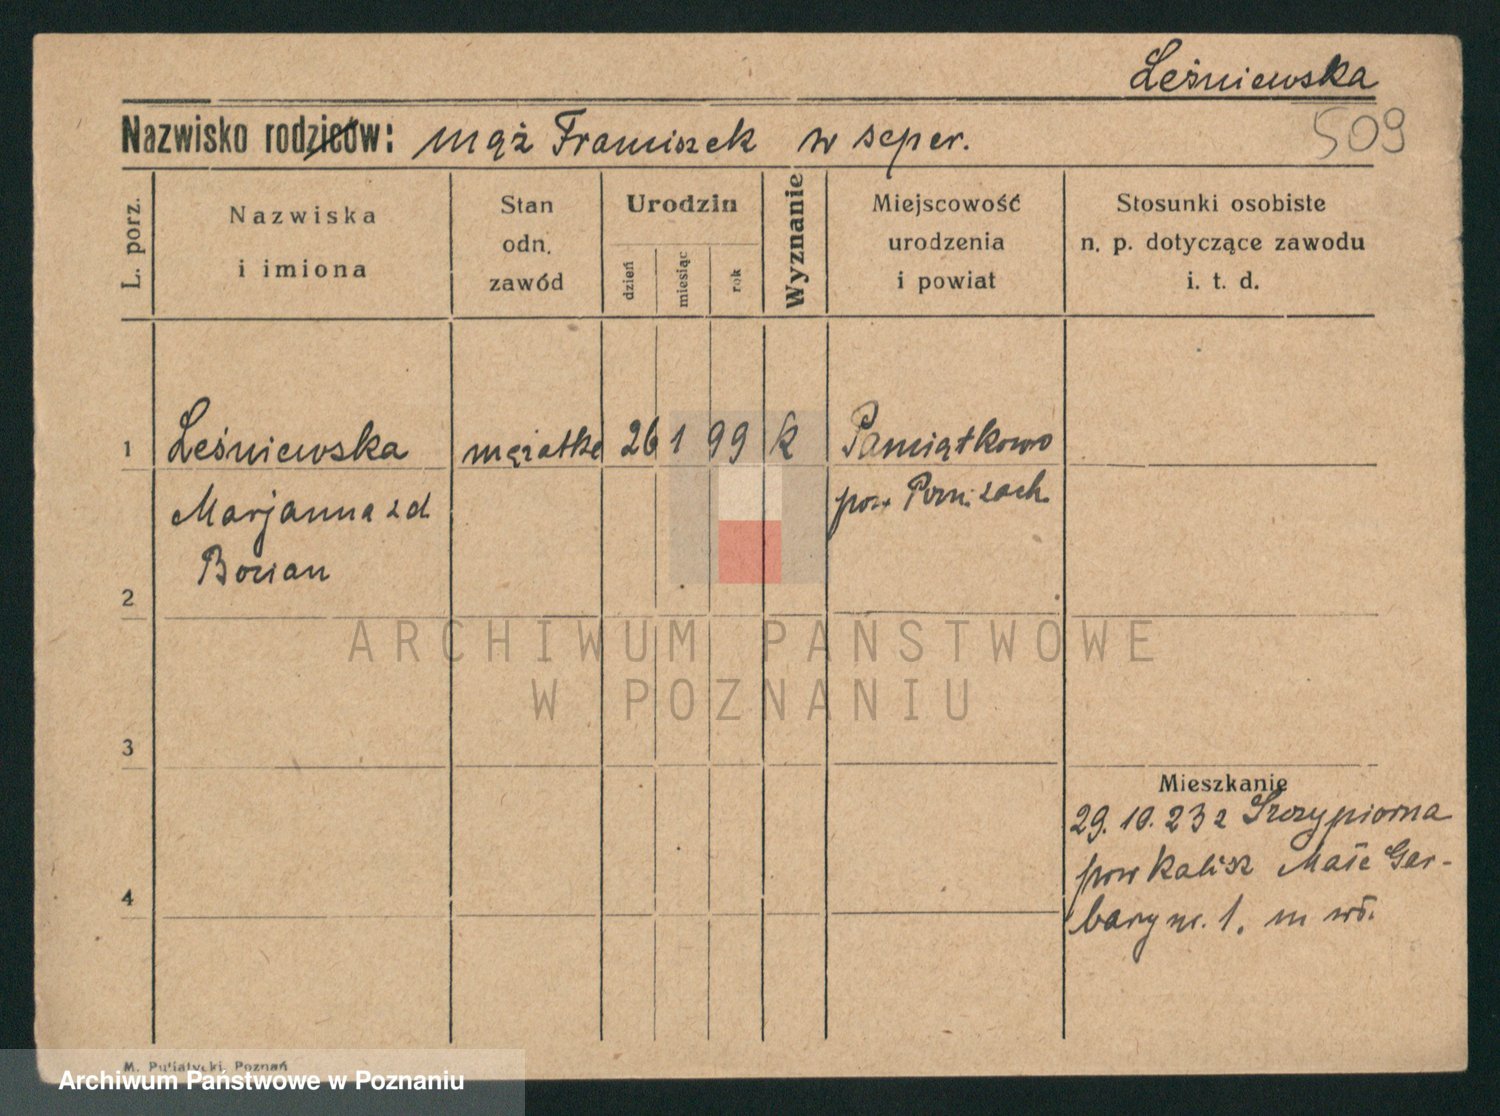 Leśniewska
509
Nazwisko rodziców: mąż Franciszek w seper.
L. porz.
Nazwiska
i imiona
Stan
odn.
zawód
Urodzin
dzień
miesiąc
rok
Wyznanie
Miejscowość
urodzenia
i powiat
Stosunki osobiste
n. p. dotyczące zawodu
i. t. d.
1 Leśniewska mężatka 26 1 99 k Pamiątkowo
Marjanna zd pow. Pozn. zach.
Bocian
2
3
4
Mieszkanie
29. 10. 23 z Szczypiorna
pow Kalisz Małe Gar-
bary nr. 1. m wł.
ARCHIWUM PAŃSTWOWE
W POZNANIU
M. Putiatycki, Poznań
Archiwum Państwowe w Poznaniu